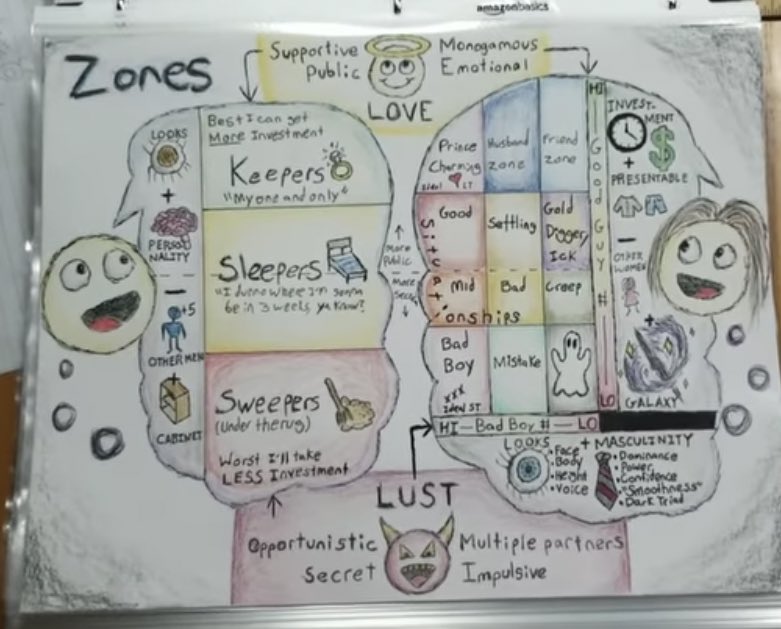 amazonbasics
Zones
Supportive
Public
Monogamous
Emotional
LOVE
LOOKS
+
PERSO
NALITY
−
+5
OTHER MEN
+
CABINET
Best I can get
More Investment
Keepers
"My one and only"
Sleepers
"I dunno where I'm gonna
be in 3 weeks ya know?"
Sweepers
(Under the rug)
Worst I'll take
LESS Investment
More
Public
More
Secret
Prince
Charming
Ideal LT
Husband
zone
Friend
zone
Good
Settling
Gold
Digger/
Ick
Mid
Bad
Creep
Situationships
Bad
Boy
xxx
Ideal ST
Mistake
HI
Good Guy #
LO
HI — Bad Boy # — LO
INVEST-
MENT
$
+
PRESENTABLE
−
OTHER
WOMEN
+
GALAXY
LOOKS
• Face
• Body
• Height
• Voice
+ MASCULINITY
• Dominance
• Power
• Confidence
• "Smoothness"
• Dark Triad
LUST
Opportunistic
Secret
Multiple partners
Impulsive